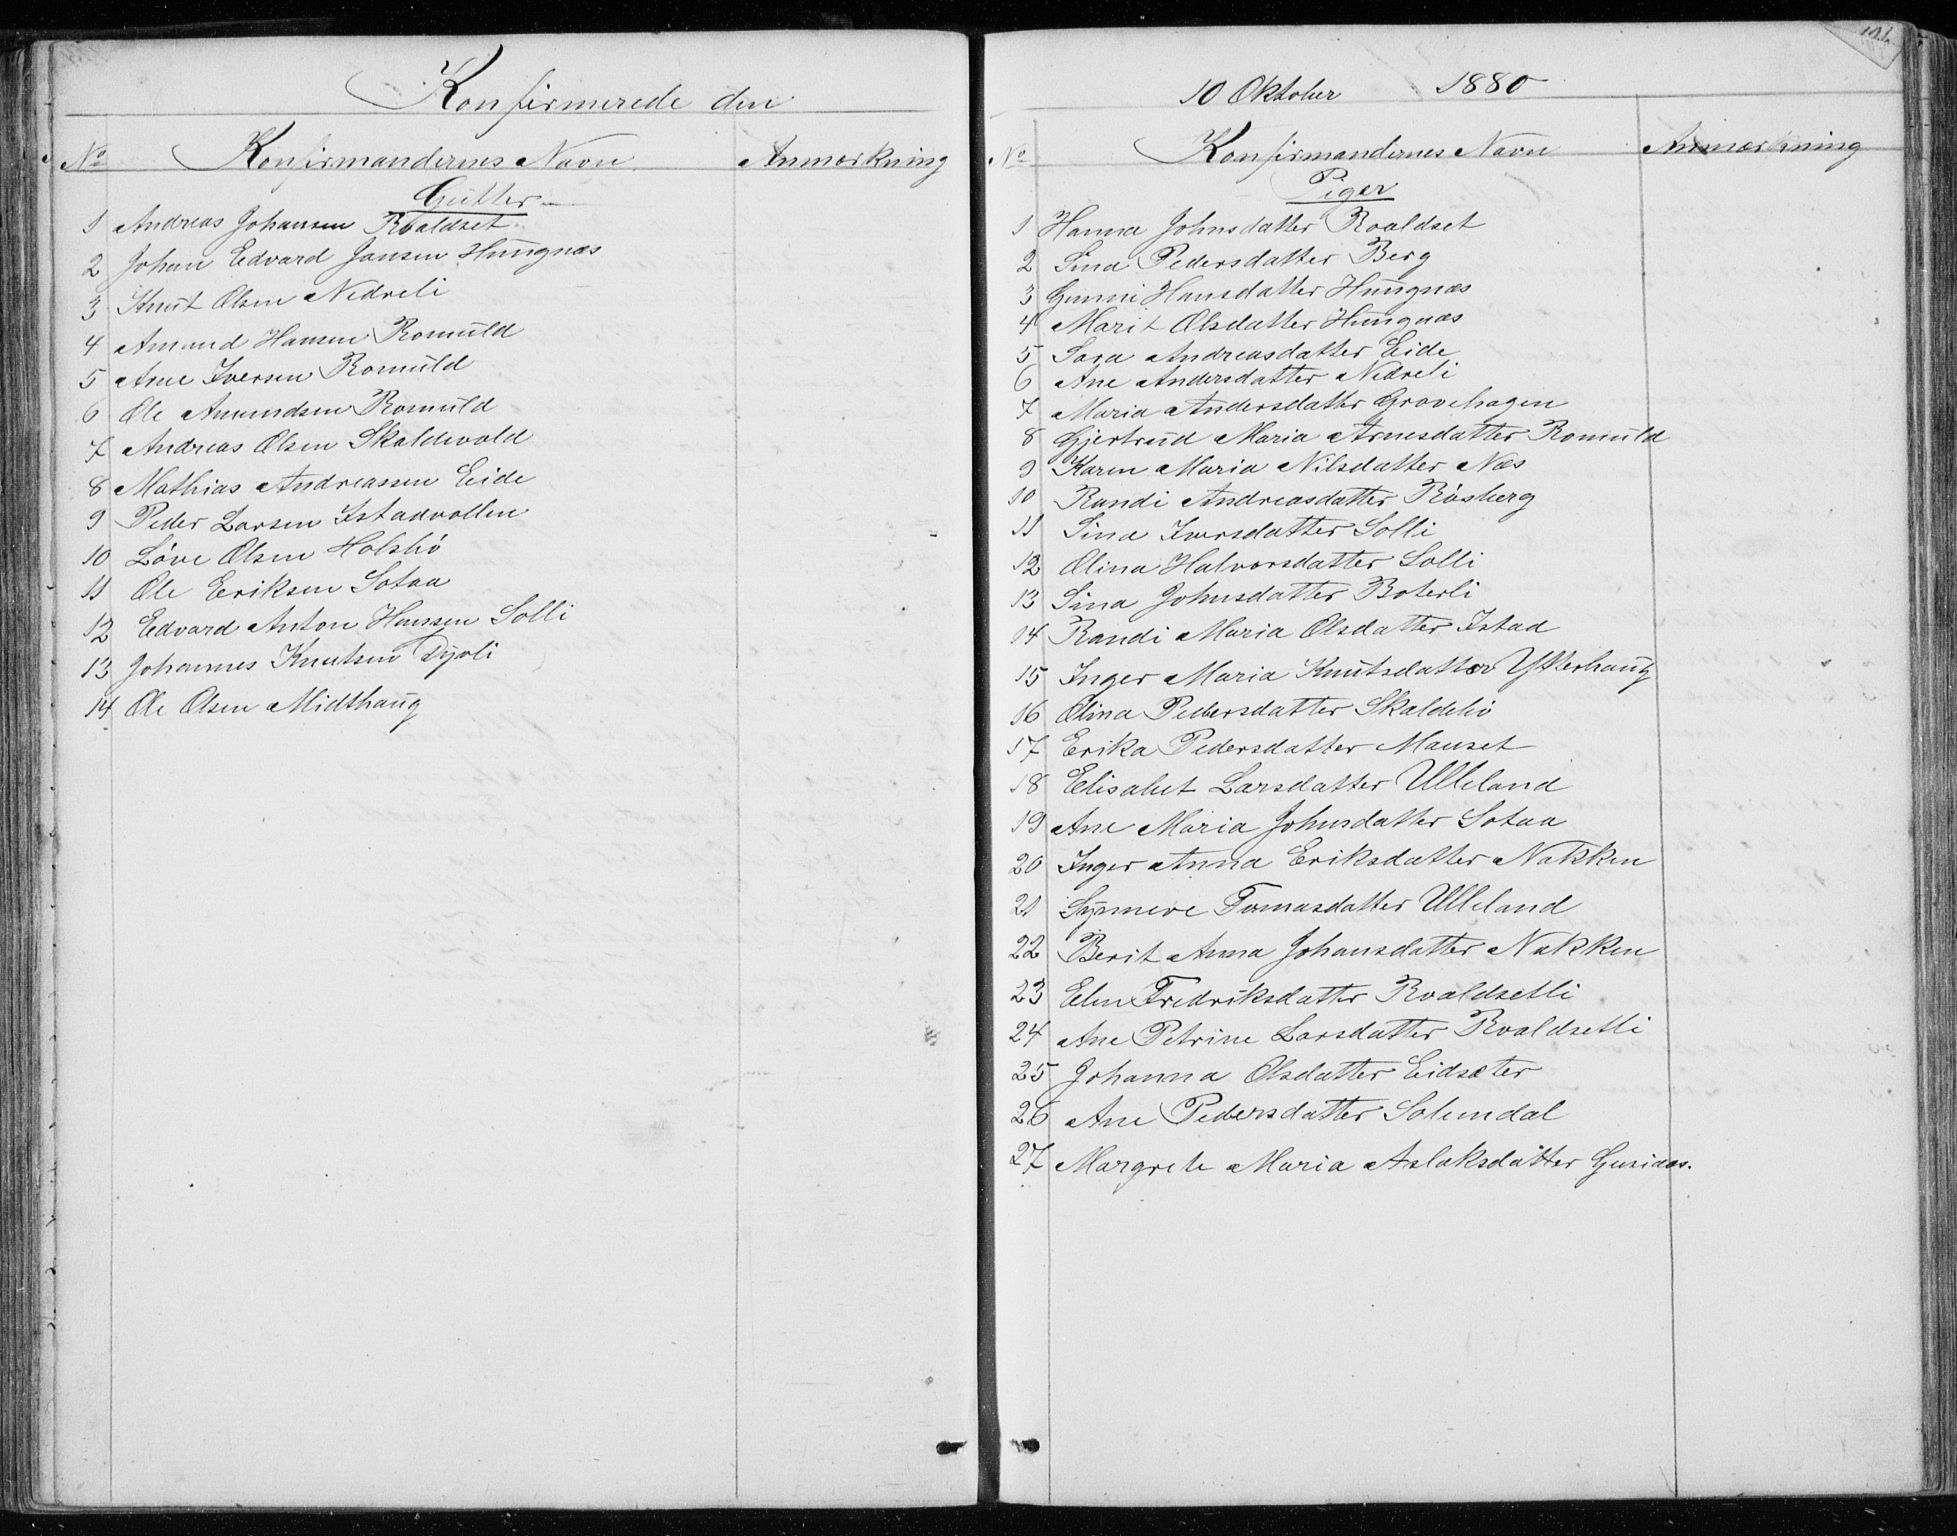 Konfirmerede den
No Konfirmandernes Navn Anmærkning
Gutter
1 Andreas Johansen Roaldset
2 Johan Edvard Jansen Hungnæs
3 Knut Olsen Nedreli
4 Amund Hansen Romuld
5 Arne Iversen Romuld
6 Ole Amundsen Romuld
7 Andreas Olsen Skaldevold
8 Mathias Andreassen Eide
9 Peder Larsen Istadvollen
10 Løve Olsen Holsbø
11 Ole Eriksen Sotaa
12 Edvard Anton Hansen Solli
13 Johannes Knutsen Dyrli
14 Ole Olsen Midthaug
10 Oktober 1880
No Konfirmandernes Navn Anmærkning
Piger
1 Hanna Johnsdatter Roaldset
2 Sina Pedersdatter Berg
3 Gunni Hansdatter Hungnæs
4 Marit Olsdatter Hungnæs
5 Sara Andreasdatter Eide
6 Ane Andersdatter Nedreli
7 Maria Andersdatter Grovehagen
8 Gjertrud Maria Arnesdatter Romuld
9 Karen Maria Nilsdatter Næs
10 Randi Andreasdatter Røsberg
11 Sina Iversdatter Solli
12 Olina Halvorsdatter Solli
13 Sina Johnsdatter Boterli
14 Randi Maria Olsdatter Istad
15 Inger Maria Knutsdatter Ytterhaug
16 Olina Pedersdatter Skaldebø
17 Erika Pedersdatter Mauset
18 Elisabet Larsdatter Ulleland
19 Ane Maria Johnsdatter Sotaa
20 Inger Anna Eriksdatter Nakken
21 Synneve Tomasdatter Ulleland
22 Berit Anna Johansdatter Nakken
23 Elen Fredriksdatter Roaldsetli
24 Ane Petrine Larsdatter Roaldsetli
25 Johanna Olsdatter Eidsæter
26 Ane Pedersdatter Solemdal
27 Margrete Maria Aslaksdatter Gusiaas.